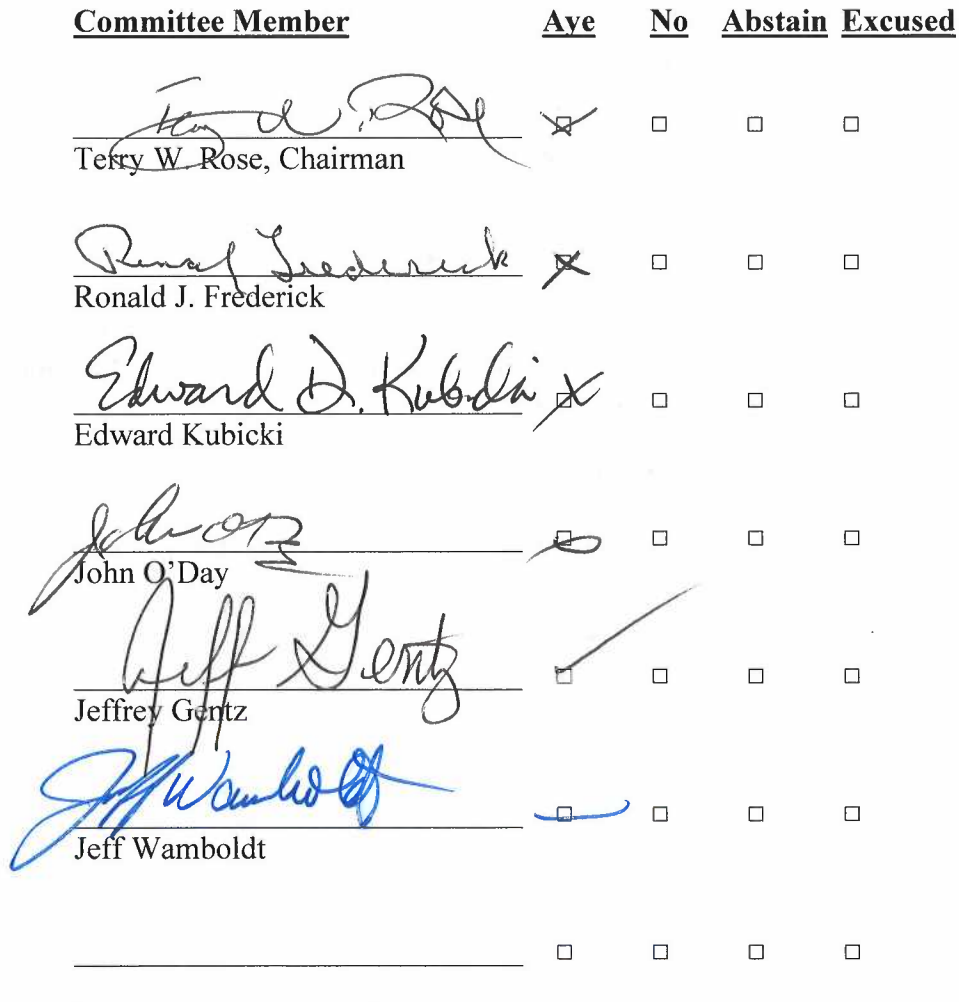 Committee Member Aye No Abstain Excused
Terry W. Rose
Terry W. Rose, Chairman
Ronald Frederick
Ronald J. Frederick
Edward D. Kubicki
Edward Kubicki
John O'Day
John O'Day
Jeff Gentz
Jeffrey Gentz
Jeff Wamboldt
Jeff Wamboldt